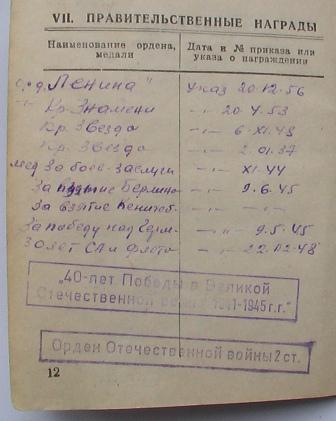 VII. ПРАВИТЕЛЬСТВЕННЫЕ НАГРАДЫ
Наименование ордена, медали
Дата и № приказа или указа о награждении
орд. "Ленина" Указ 20.12.56
-"- Кр. Знамени -"- 20.4.53
Кр. Звезда -"- 6.XI.48
Кр. Звезда -"- 2.01.37
мед За боев. заслуги -"- XI.44
За взятие Берлина -"- 9.6.45
За взятие -"- -"-
За победу над Герм. -"- 9.5.45
30 лет СА и Флота -"- 22.02.48
"40-лет Победы в Великой
Отечественной войне 1941-1945 г.г."
Орден Отечественной войны 2 ст.
12